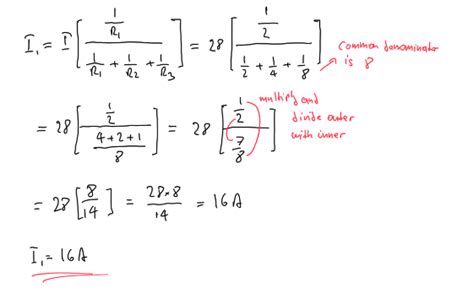 I₁ = I [ (1/R₁) / (1/R₁ + 1/R₂ + 1/R₃) ] = 28 [ (1/2) / (1/2 + 1/4 + 1/8) ] → Common denominator is 8
= 28 [ (1/2) / ((4+2+1)/8) ] = 28 [ (1/2) / (7/8) ] multiply and divide outer with inner
= 28 [ 8/14 ] = (28×8)/14 = 16A
I₁ = 16A